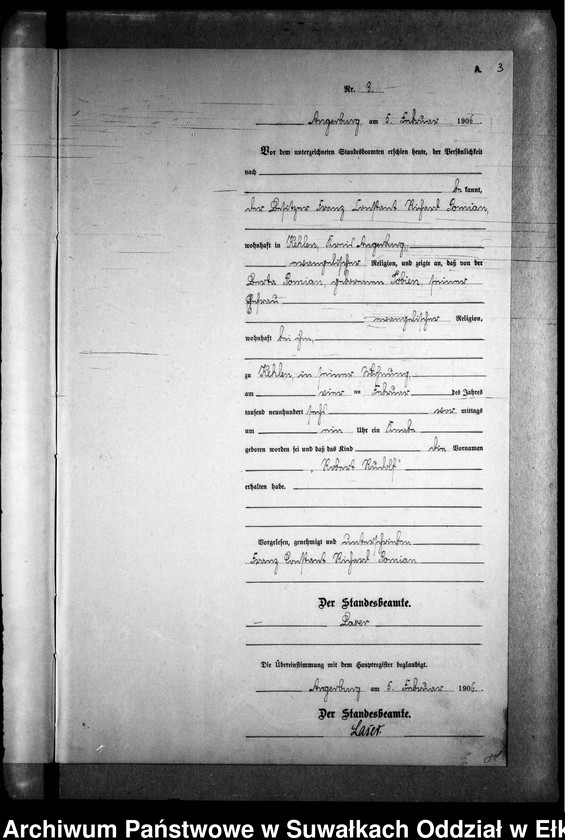 A. 3
Nr. 3.
Angerburg am 5. Februar 1906.
Vor dem unterzeichneten Standesbeamten erschien heute, der Persönlichkeit
nach
be kannt,
der Besitzer Franz Constant Richard Comian,
wohnhaft in Kehlen, Kreis Angerburg,
evangelischer Religion, und zeigte an, daß von der
Berta Comian, geborenen Tobien, seiner
Ehefrau
evangelischer Religion,
wohnhaft bei ihm,
zu Kehlen, in seiner Wohnung,
am vier ten Februar des Jahres
tausend neunhundert sechs vor mittags
um ein Uhr ein Knabe
geboren worden sei und daß das Kind die Vornamen
„Robert Rudolf"
erhalten habe.
Vorgelesen, genehmigt und unterschrieben
Franz Constant Richard Comian
Der Standesbeamte.
Laser
Die Übereinstimmung mit dem Hauptregister beglaubigt.
Angerburg am 5. Februar 1906.
Der Standesbeamte.
Laser.
Archiwum Państwowe w Suwałkach Oddział w Ełk